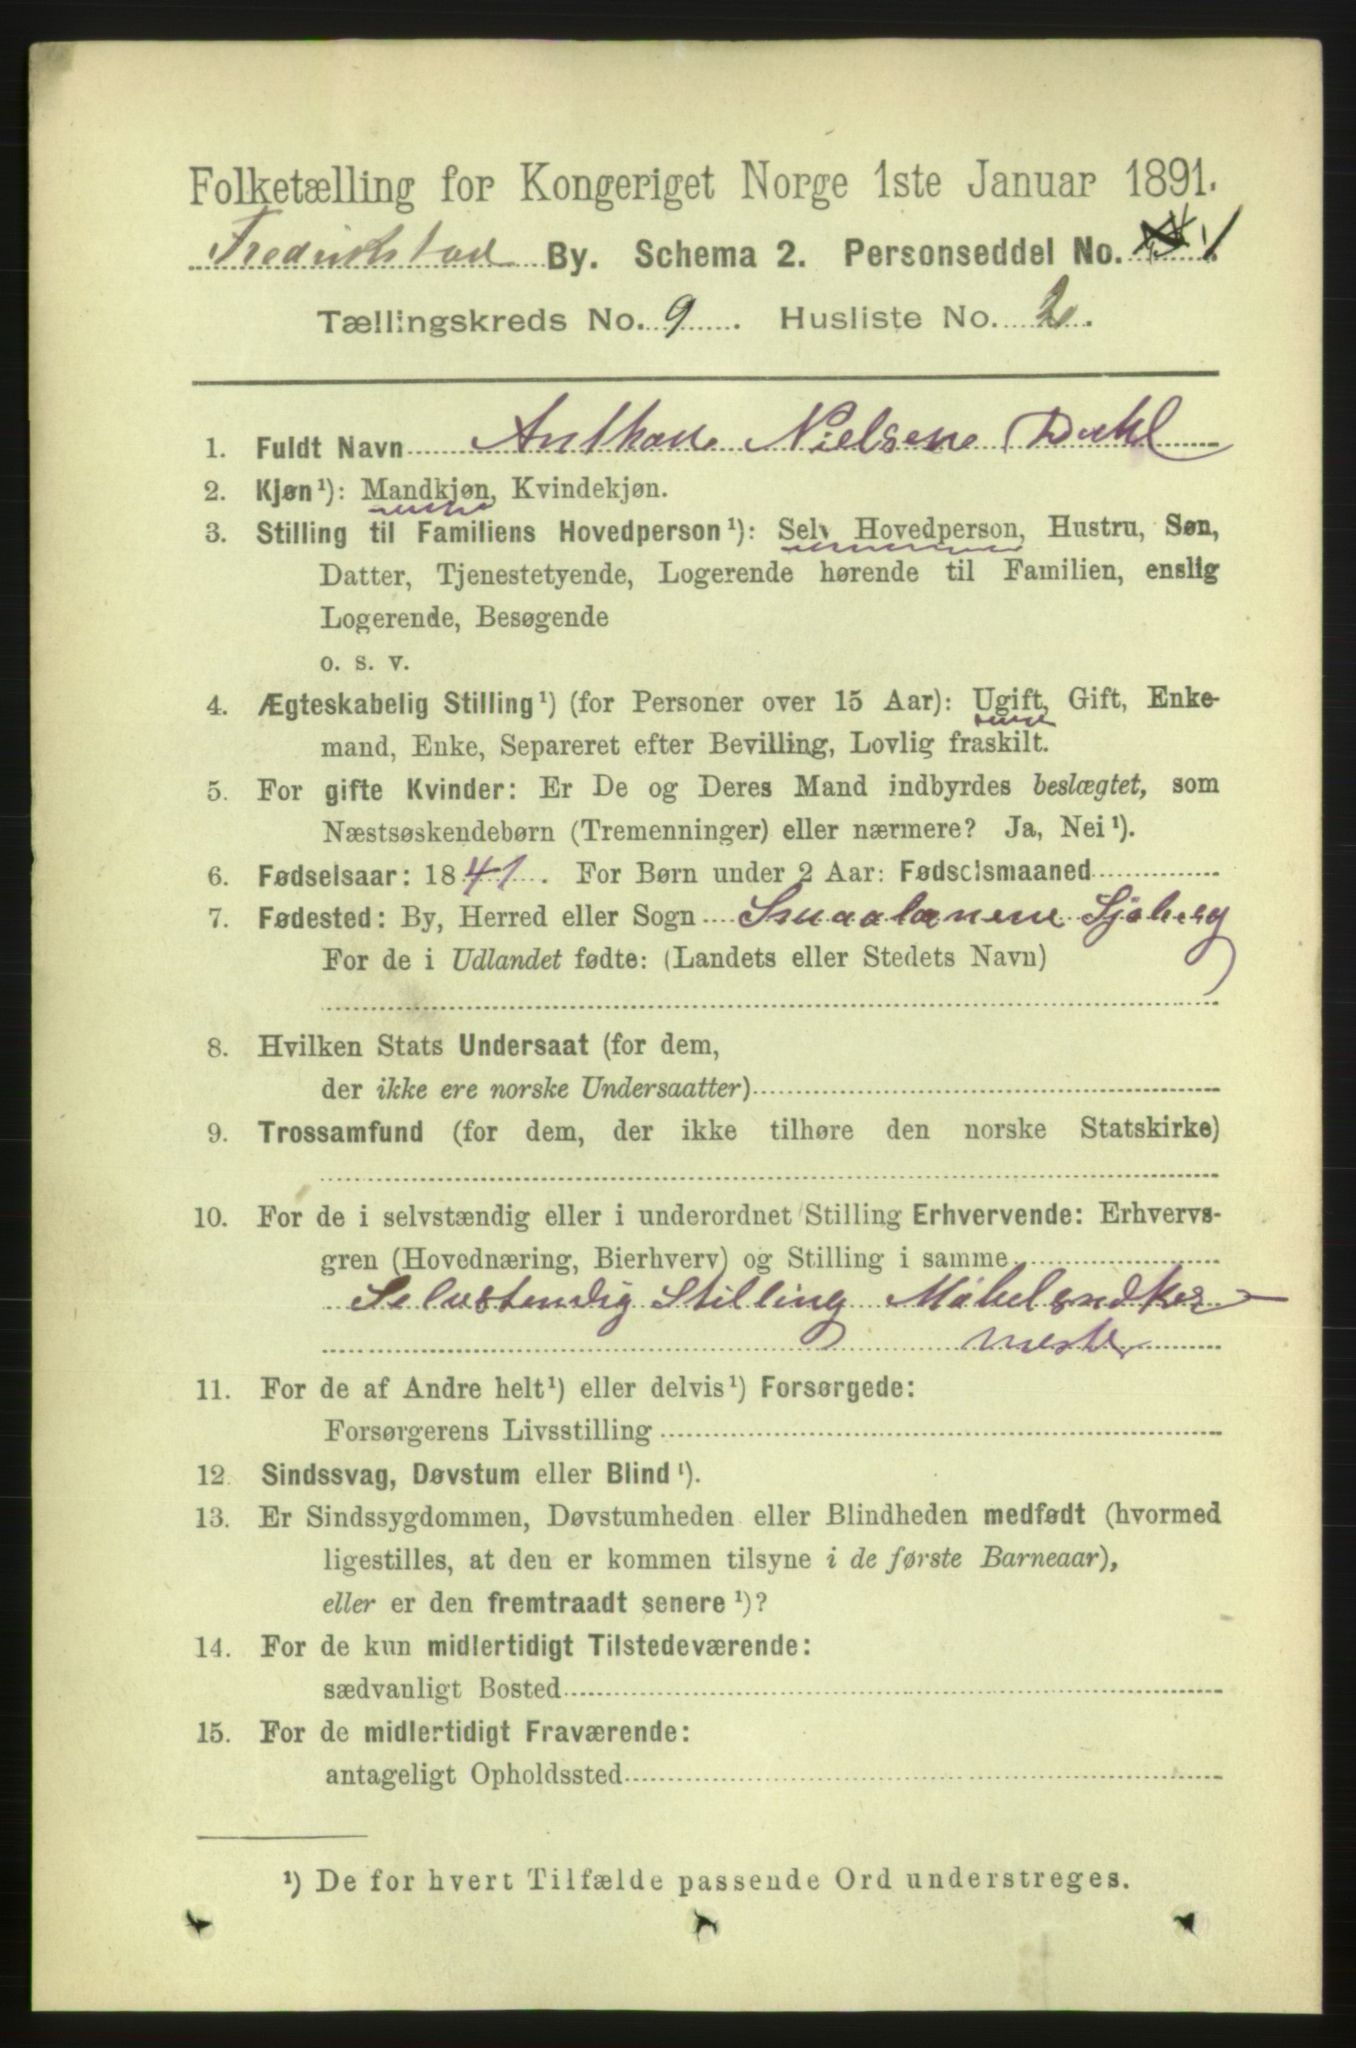 Folketælling for Kongeriget Norge 1ste Januar 1891.
Fredrikstad By. Schema 2. Personseddel No. 1
Tællingskreds No. 9. Husliste No. 2.
1. Fuldt Navn Anthon Nielsen Dahl
2. Kjøn¹): Mandkjøn, Kvindekjøn.
3. Stilling til Familiens Hovedperson¹): Selv Hovedperson, Hustru, Søn,
Datter, Tjenestetyende, Logerende hørende til Familien, enslig
Logerende, Besøgende
o. s. v.
4. Ægteskabelig Stilling¹) (for Personer over 15 Aar): Ugift, Gift, Enke-
mand, Enke, Separeret efter Bevilling, Lovlig fraskilt.
5. For gifte Kvinder: Er De og Deres Mand indbyrdes beslægtet, som
Næstsøskendebørn (Tremenninger) eller nærmere? Ja, Nei¹).
6. Fødselsaar: 1841. For Børn under 2 Aar: Fødselsmaaned
7. Fødested: By, Herred eller Sogn Smaalenene Sjøberg
For de i Udlandet fødte: (Landets eller Stedets Navn)
8. Hvilken Stats Undersaat (for dem,
der ikke ere norske Undersaatter)
9. Trossamfund (for dem, der ikke tilhøre den norske Statskirke)
10. For de i selvstændig eller i underordnet Stilling Erhvervende: Erhvervs-
gren (Hovednæring, Bierhverv) og Stilling i samme
Selvstendig Stilling Møbelsndker
mester
11. For de af Andre helt¹) eller delvis¹) Forsørgede:
Forsørgerens Livsstilling
12. Sindssvag, Døvstum eller Blind¹).
13. Er Sindssygdommen, Døvstumheden eller Blindheden medfødt (hvormed
ligestilles, at den er kommen tilsyne i de første Barneaar),
eller er den fremtraadt senere¹)?
14. For de kun midlertidigt Tilstedeværende:
sædvanligt Bosted
15. For de midlertidigt Fraværende:
antageligt Opholdssted
¹) De for hvert Tilfælde passende Ord understreges.